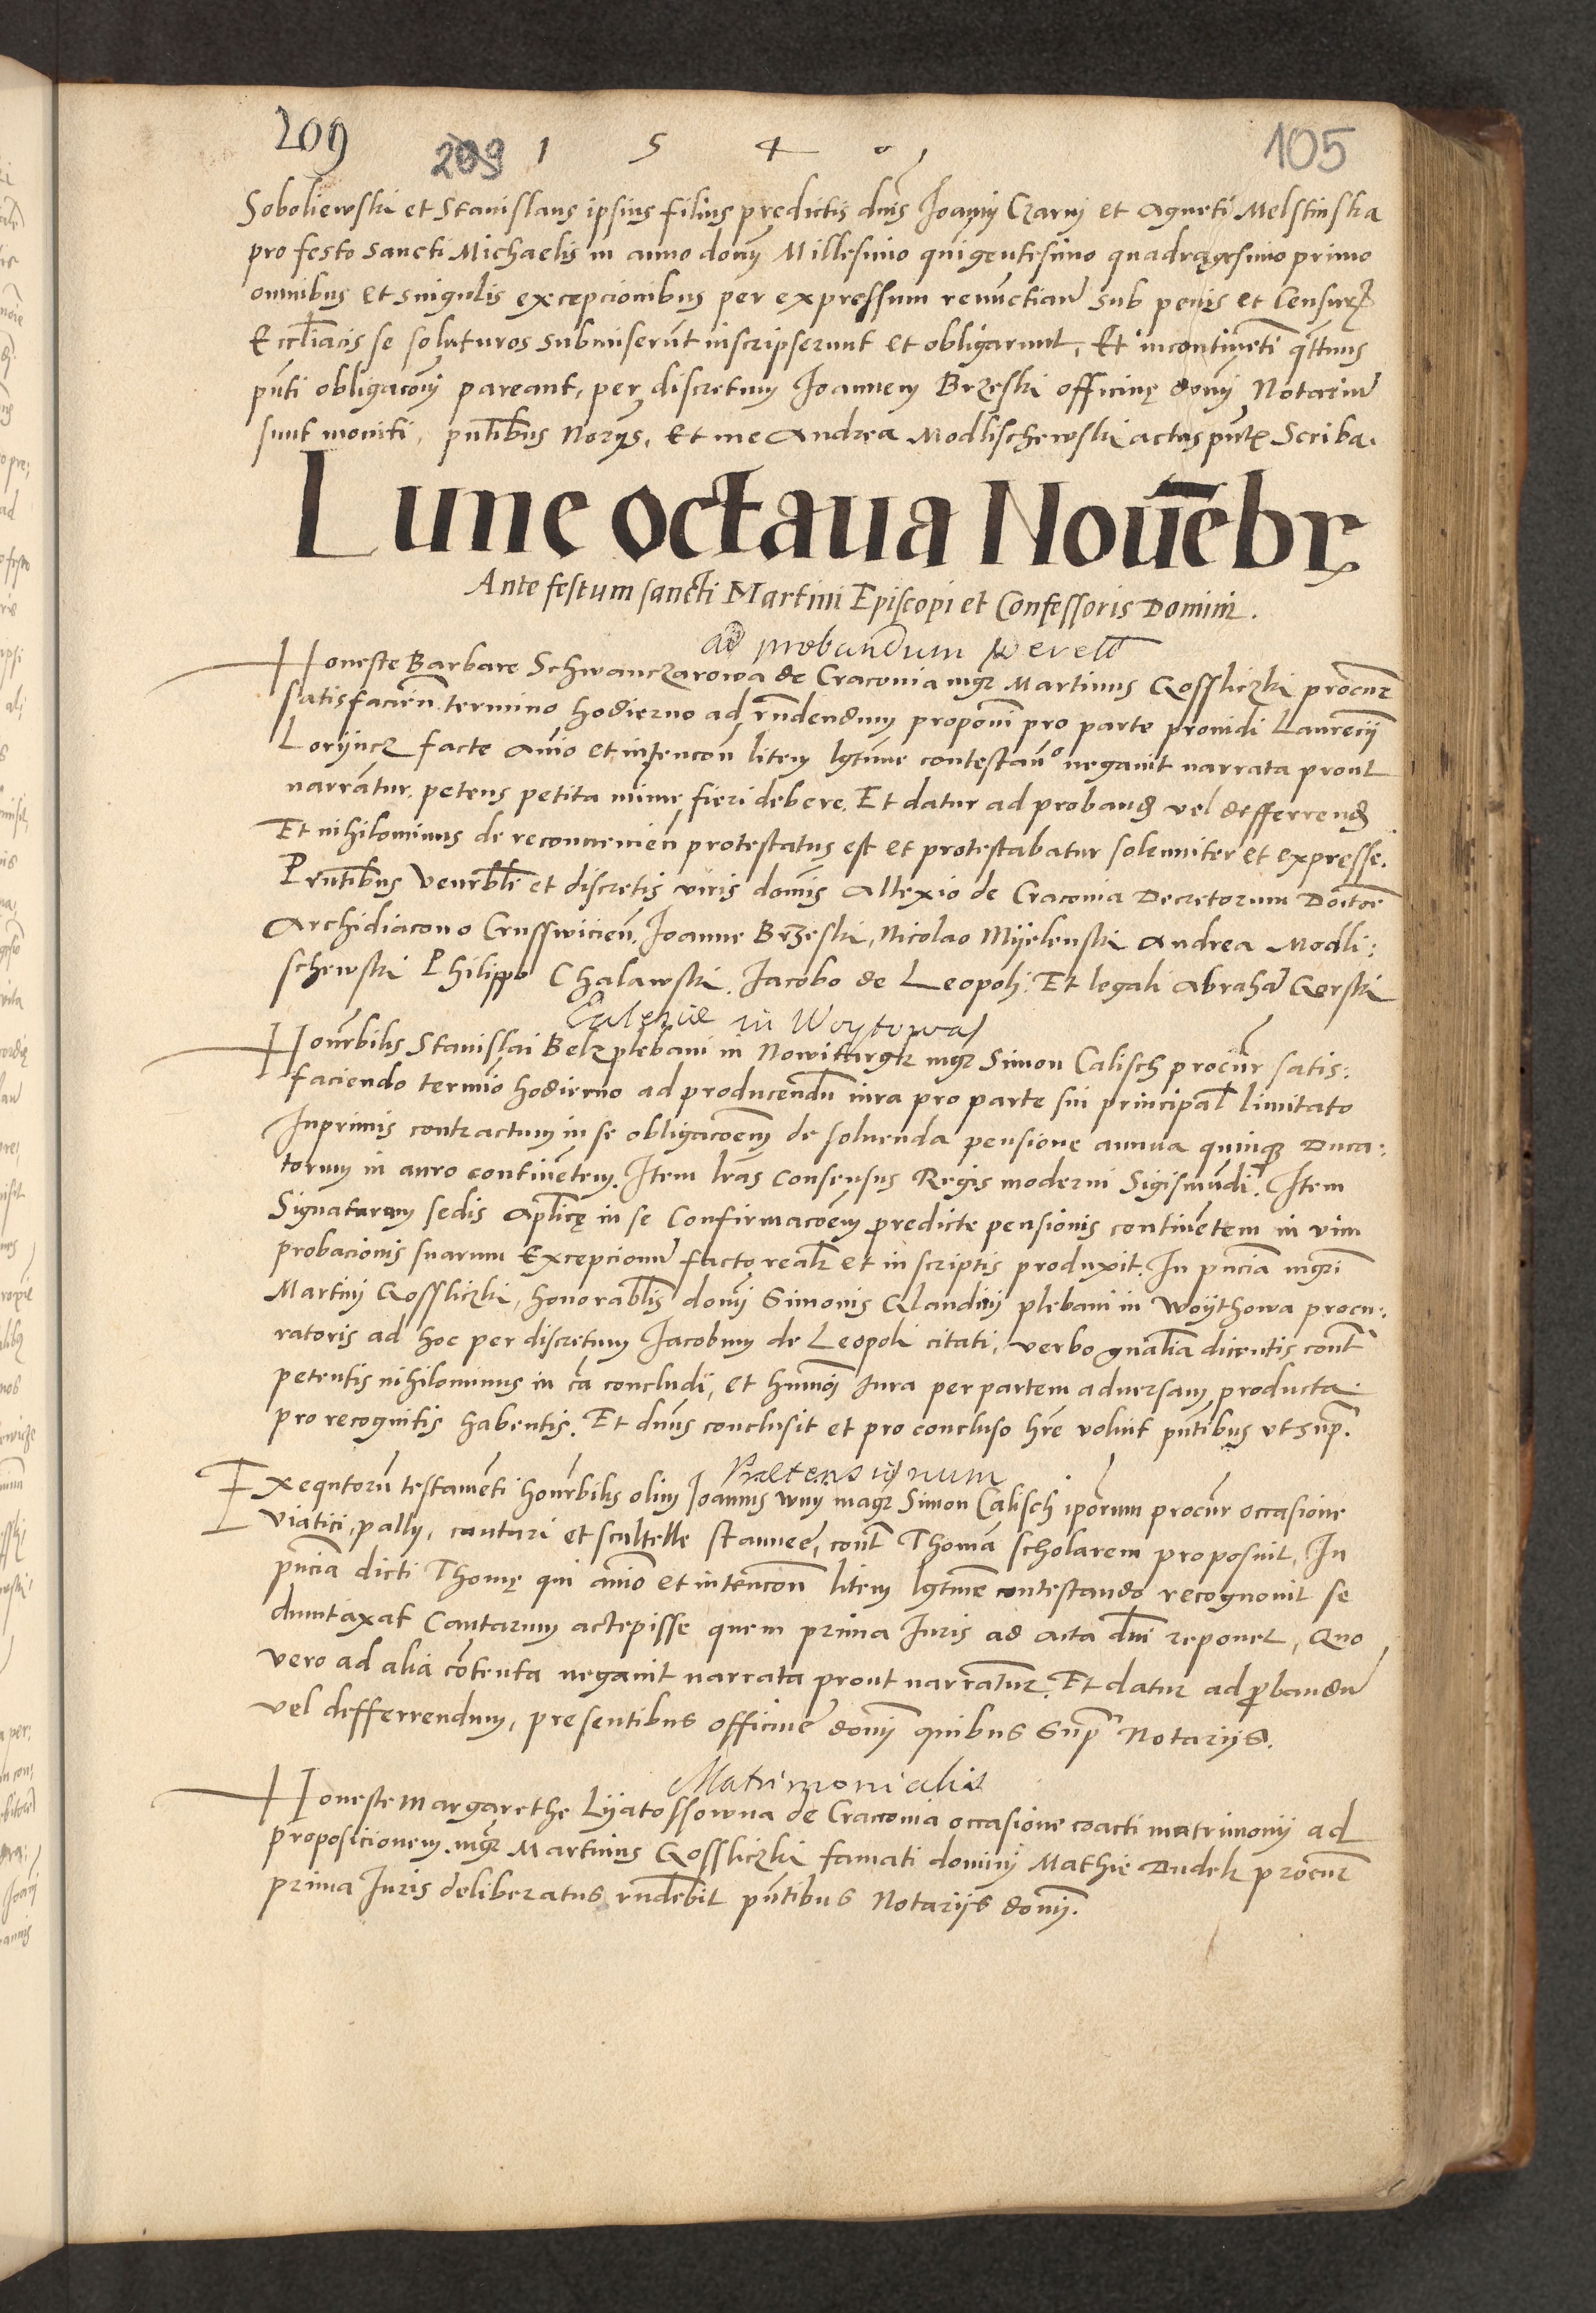 209 209 1 5 4 0 105
Soboliewski et Stanislaus ipsius filius prędictis dnis Joanni Czarnj et Agneti Melstinska
pro festo sancti Michaelis in anno domj Millesimo quigentesimo quadragesimo primo
omnibus et singulis excepcionibus per expressum renuctiand sub penis et Censur
Eccliacis se soluturos submiserut inscripserunt et obligarunt, Et incontineti qttnus
pnti obligaconi pareant, per discretum Joannem Brzeski officinę domj Notariu
sunt moniti, pntibus Norijs, et me Andrea Modlischewski actus pntis Scriba.
Lune octaua Nouebr
Ante festum sancti Martini Episcopi et Confessoris Domini.
ad probandum
Honeste Barbare Schwanczarowa de Cracouia mgr Martinus Gossliczki procur
satisfacien termino hodierno ad rndendum proponi pro parte prouidi Laurecij
Lorijncz facte anio et intencon litem lgtime contestando negauit narrata prout
narrantur. petens petita nime fieri debere. Et datur ad proband vel defferrend
Et nihilominus de reconuenien protestatus est et protestabatur solemniter et expresse.
Prntibus Venrbli et discretis viris domis Allexio de Cracouia Decretorum Doctoe
Archidiacono Crusswicien, Joanne Brzeski, Nicolao Mijelenski Andrea Modli:
schewski Philippo Chalawski. Jacobo de Leopoli. Et legali Abraha Gorski
in Woytowa
Honrbilis Stanislai Belz plebani in Nowitargk mgr Simon Calisch procur satis:
faciendo termio hodierno ad producendu iura pro parte sui principal limitato
Inprimis contractum in se obligacoem de soluenda pensione annua quinqz Duca:
torum in auro continetem. Item lras Consensus Regis moderni Sigismudi. Item
Signaturam sedis Aplicę in se Confirmacoem predicte pensionis continetem in vim
probacionis suarum Excepcionu facto realr et in scriptis produxit. In pncia mgri
Martinj Gosslitzki, honorablis domj Simonis Glandinj plebani in Woijthowa procu:
ratoris ad hoc per discretum Jacobum de Leopoli citati, verbo gnalia dicentis cont
petentis nihilominus in ca concludi, et humoi Iura per partem aduersam producta
pro recognitis habentis. Et dnus conclusit et pro concluso hre voluit pntibus vt sup.
Exeqntoru testameti honrbilis olim Joannis magr Simon Calisch iporum procur occasione
viatici, pallij, cantari et scultelle stannee, cont Thoma scholarem proposuit, In
pncia dicti Thomę qui anio et intencon litem lgtime contestando recognouit se
dumtaxat Cantarum accepisse quem prima Iuris ad acta dni reponet, Quo
vero ad alia contenta negauit narrata prout narrantur. Et datur ad probandu
vel defferrendum, presentibus officine domj quibus sup Notarijs.
Matrimonialis
Honeste Margarethe Lijatossowna de Cracouia occasione coacti matrimonij ad
proposicionem mgr Martinus Gosslitzki famati domini Mathie Dudek procur
prima Iuris deliberatus rndebit pntibus Notarijs domj.